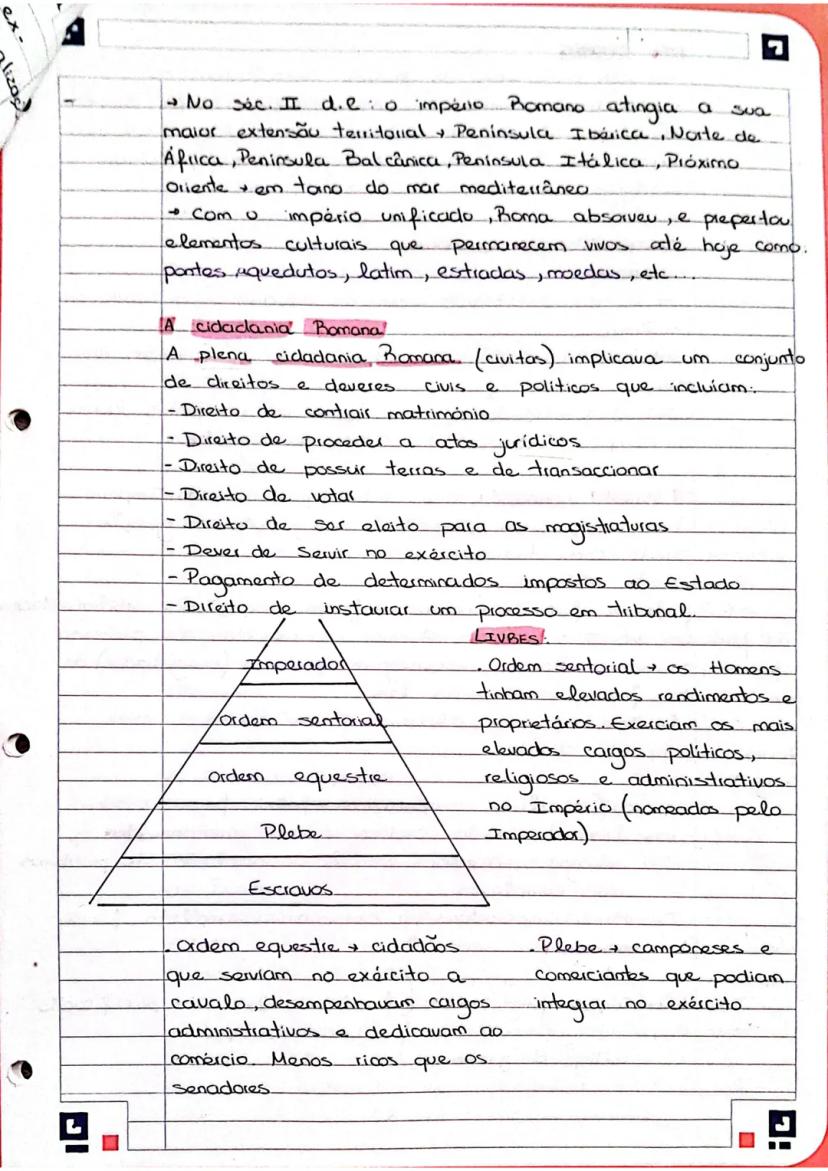 ex-
alizaç
- → No séc. II d.c: o império Romano atingia a sua
maior extensão territorial → Península Ibérica, Norte de
África, Península Balcânica, Península Itálica, Próximo
Oriente → em torno do mar mediterrâneo
→ Com o império unificado, Roma absorveu, e prepertou
elementos culturais que permanecem vivos até hoje como.
pontes aquedutos, latim, estradas, moedas, etc...
A cidadania Romana
A plena cidadania Romana (civitas) implicava um conjunto
de direitos e deveres civis e políticos que incluíam:
- Direito de contrair matrimónio
- Direito de proceder a atos jurídicos
- Direito de possuir terras e de transaccionar
- Direito de votar
- Direito de ser eleito para as magistraturas
- Dever de servir no exército
- Pagamento de determinados impostos ao Estado
- Direito de instaurar um processo em tribunal.
Imperador
Ordem sentorial
Ordem equestre
Plebe
Escravos
LIVRES:
. Ordem sentorial → os Homens
tinham elevados rendimentos e
proprietários. Exerciam os mais
elevados cargos políticos,
religiosos e administrativos
no Império (nomeados pelo
Imperador).
. Ordem equestre → cidadãos
que serviam no exército a
cavalo, desempenhavam cargos
administrativos e dedicavam ao
comércio. Menos ricos que os
senadores
. Plebe → camponeses e
comerciantes que podiam
integrar no exército